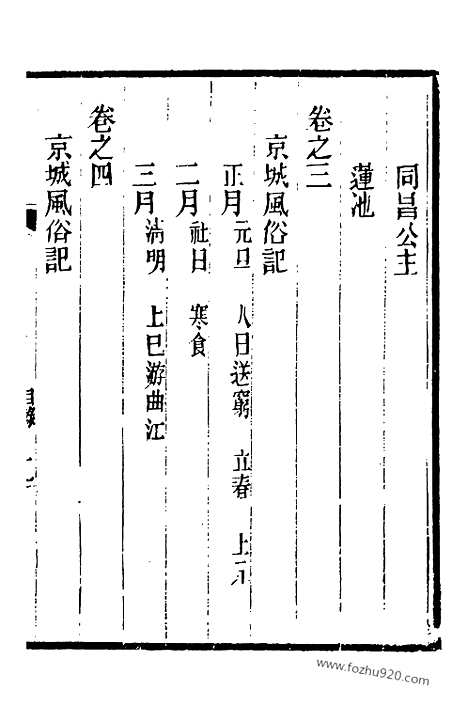 同昌公主
蓮池
卷之三
京城風俗記
正月 元旦 人日送窮 立春 上元
二月 社日 寒食
三月 清明 上巳游曲江
卷之四
京城風俗記
目錄
www.fozhu920.com